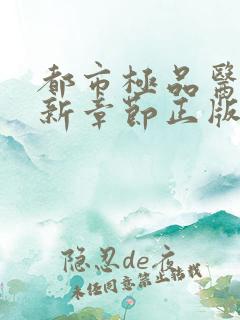 都市極品醫
新章節正版
隐忍de夜
未经同意禁止转载